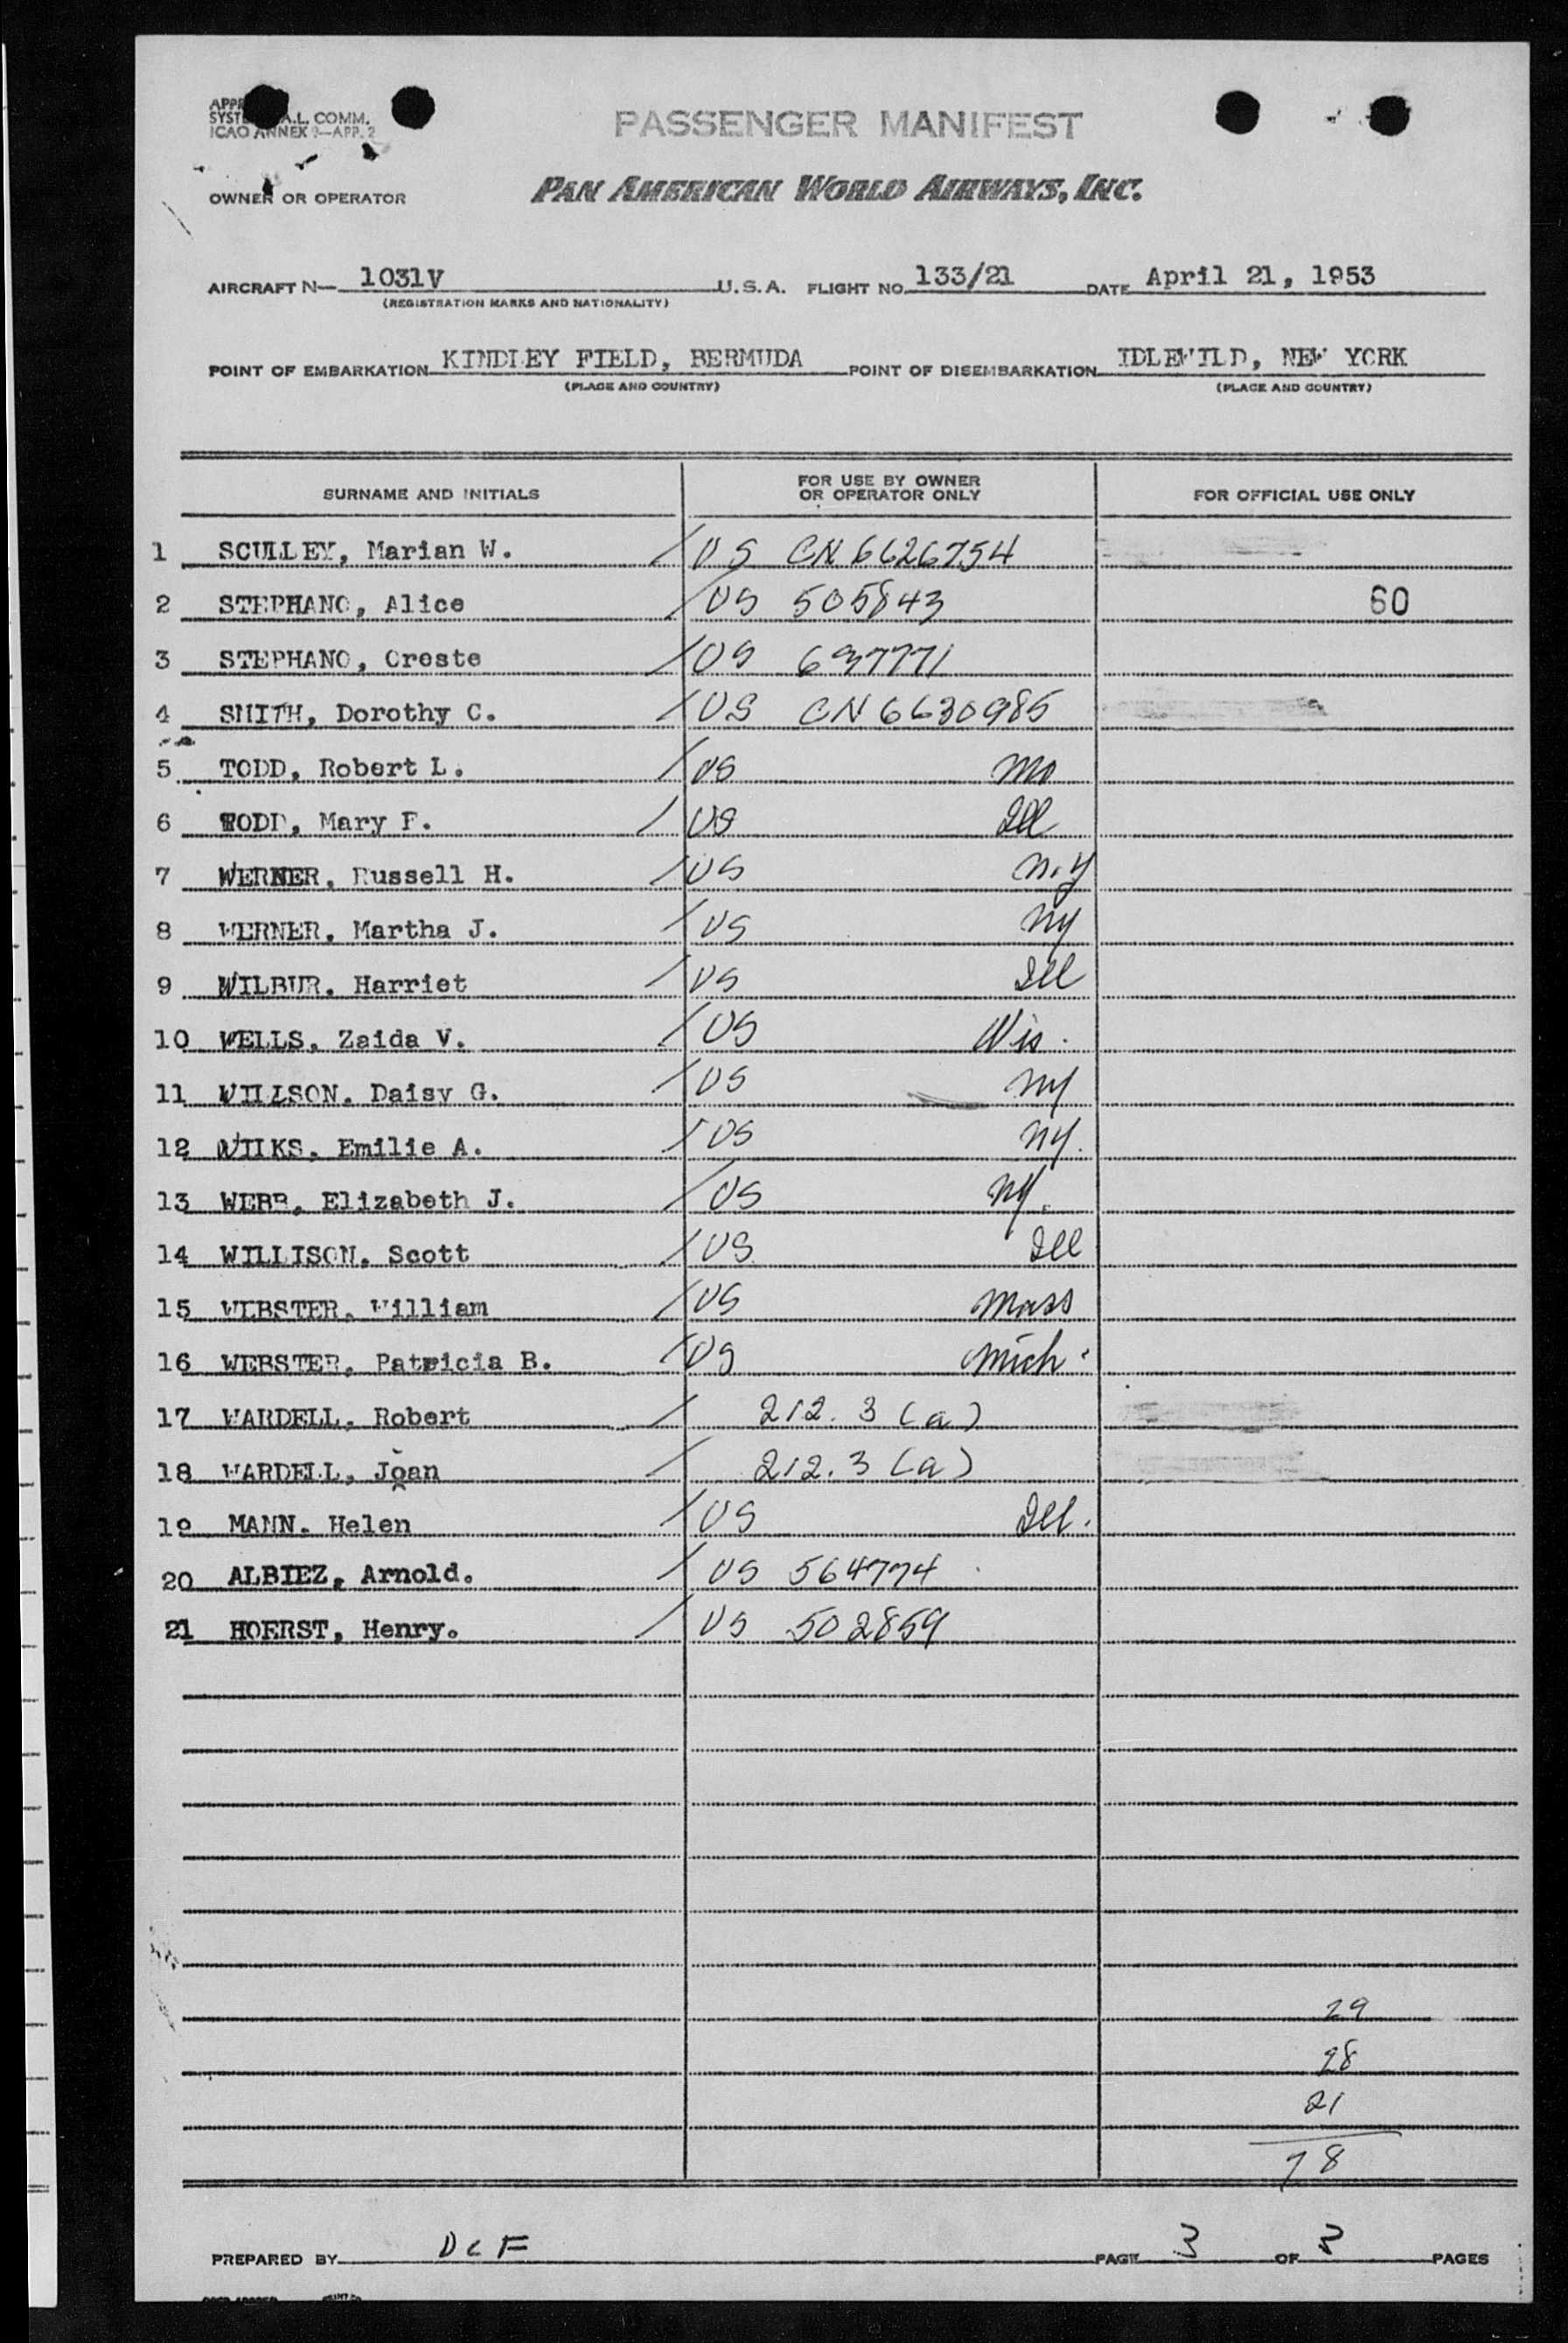 SYST A.L. COMM.
ICAO ANNEX 9—APP. 2
PASSENGER MANIFEST
OWNER OR OPERATOR PAN AMERICAN WORLD AIRWAYS, INC.
AIRCRAFT N— 1031V U.S.A. FLIGHT NO. 133/21 DATE April 21, 1953
(REGISTRATION MARKS AND NATIONALITY)
POINT OF EMBARKATION KINDLEY FIELD, BERMUDA POINT OF DISEMBARKATION IDLEWILD, NEW YORK
(PLACE AND COUNTRY) (PLACE AND COUNTRY)
SURNAME AND INITIALS FOR USE BY OWNER OR OPERATOR ONLY FOR OFFICIAL USE ONLY
1 SCULLEY, Marian W. / US CN 6626754
2 STEPHANO, Alice / US 505843 60
3 STEPHANO, Oreste / US 637771
4 SMITH, Dorothy C. / US CN 6630985
5 TODD, Robert L. / US Mo
6 TODD, Mary F. / US Ill
7 WERNER, Russell H. / US N.Y
8 WERNER, Martha J. / US NY
9 WILBUR, Harriet / US Ill
10 WELLS, Zaida V. / US Wis.
11 WILLSON, Daisy G. / US NY
12 WILKS, Emilie A. / US NY.
13 WEBB, Elizabeth J. / US NY.
14 WILLISON, Scott / US Ill
15 WEBSTER, William / US Mass
16 WEBSTER, Patricia B. / US Mich.
17 WARDELL, Robert / 212.3 (a)
18 WARDELL, Joan / 212.3 (a)
19 MANN, Helen / US Ill.
20 ALBIEZ, Arnold. / US 564774
21 HOERST, Henry. / US 502859
29
28
21
78
PREPARED BY DCF PAGE 3 OF 3 PAGES